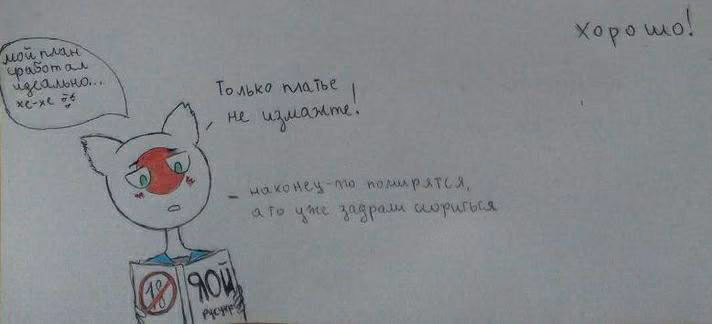 мой план
сработал
идеально...
хе-хе
Хорошо!
Только платье
не измажте!
- наконец-то помирятся,
а то уже задрали ссориться
18
ЯОЙ